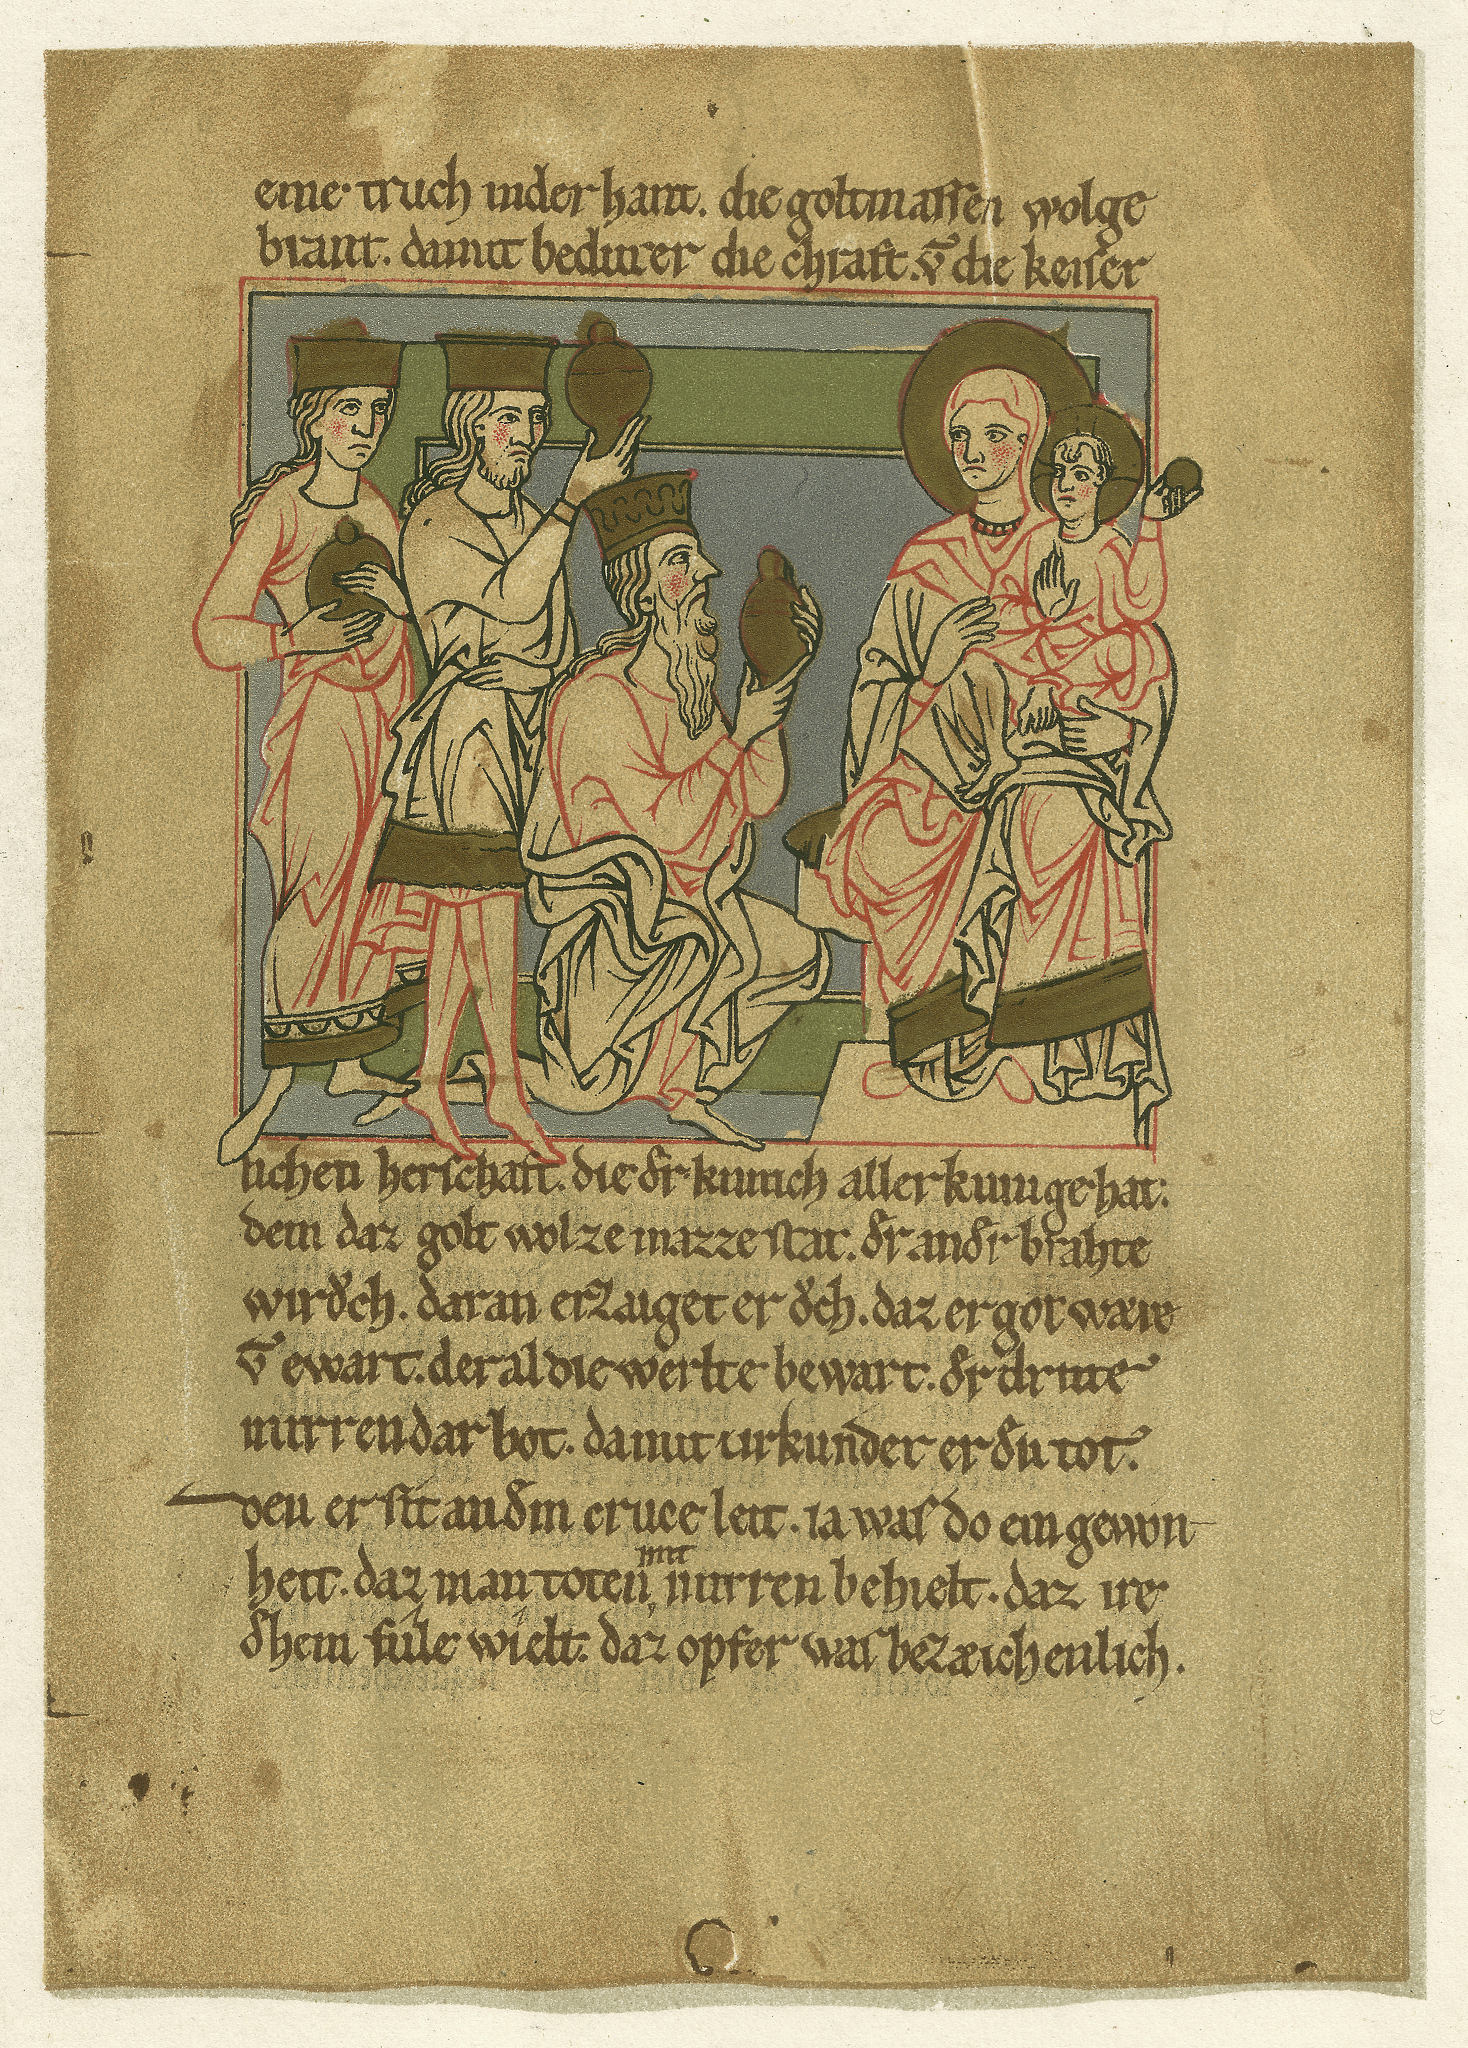 eine truch inder hant. die goltmassen wolge
brant. damit bedutet er die chraft. vn̄ die keiser
lichen herschaft. die dʼr kunich aller kunige hat:
dem daz golt wol ze mazze stat. dʼr andʼr brahte
wirǒch. daran erzaiget er ǒch. daz er got wære
vn̄ ewart. der al die werlte bewart. dʼr dritte
mirren dar bot. damit urkundet er dʼn tot.
den er sit an dʼm cruce leit. ia was do ein gewon
heit. daz man toten mit mirren behielt. daz ire
dʼhein fule wielt. daz opfer was bezæichenlich.